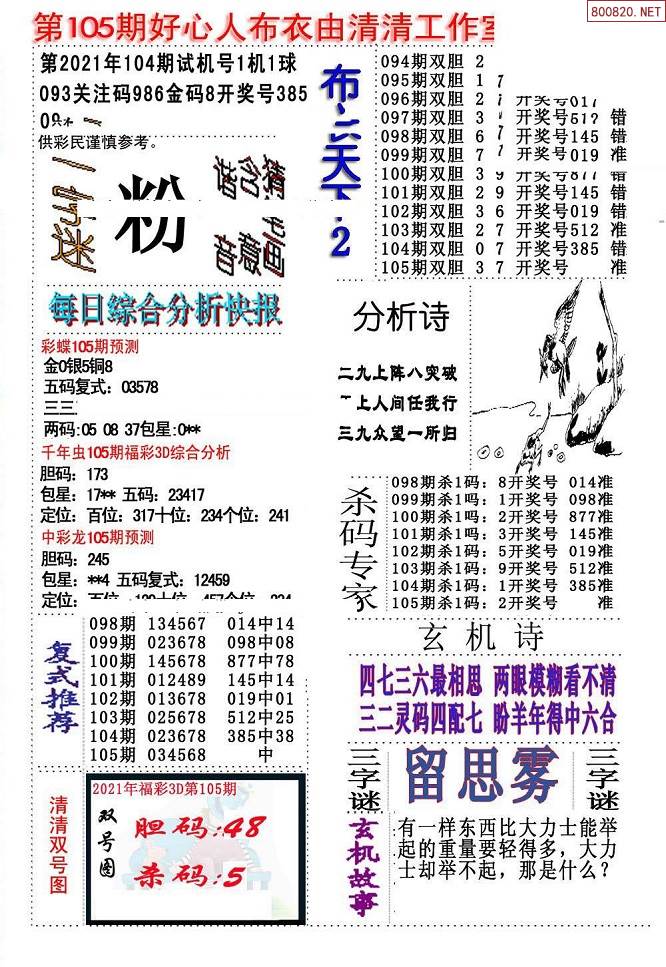 800820.NET
第105期好心人布衣由清清工作室
第2021年104期试机号1机1球
093关注码986金码8开奖号385
供彩民谨慎参考。
一字谜
粉
谐音
含意
猜笔画
每日综合分析快报
彩蝶105期预测
金0银5铜8
五码复式：03578
三三
两码:05 08 37包星:0**
千年虫105期福彩3D综合分析
胆码：173
包星：17** 五码：23417
定位：百位：317十位：234个位：241
中彩龙105期预测
胆码：245
包星：**4 五码复式：12459
定位：
复式推荐
098期 134567 014中14
099期 023678 098中08
100期 145678 877中78
101期 012489 145中14
102期 013678 019中01
103期 025678 512中25
104期 023678 385中38
105期 034568 中
清清双号图
2021年福彩3D第105期
双号图
胆码:48
杀码:5
布衣天下.2
094期双胆 2
095期双胆 1 7
096期双胆 2 开奖号017
097期双胆 3 开奖号512 错
098期双胆 6 7 开奖号145 错
099期双胆 7 开奖号019 准
100期双胆 3 9 开奖号877 错
101期双胆 2 9 开奖号145 错
102期双胆 3 6 开奖号019 错
103期双胆 2 7 开奖号512 准
104期双胆 0 7 开奖号385 错
105期双胆 3 7 开奖号 准
分析诗
二九上阵八突破
上人间任我行
三九众望一所归
杀码专家
098期杀1码：8开奖号 014准
099期杀1吗：1开奖号 098准
100期杀1吗：2开奖号 877准
101期杀1吗：3开奖号 145准
102期杀1码：5开奖号 019准
103期杀1码：9开奖号 512准
104期杀1码：1开奖号 385准
105期杀1码：2开奖号 准
玄机诗
四七三六最相思 两眼模糊看不清
三二灵码四配七 盼羊年得中六合
三字谜
留思雾
三字谜
玄机故事
有一样东西比大力士能举
起的重量要轻得多，大力
士却举不起，那是什么？